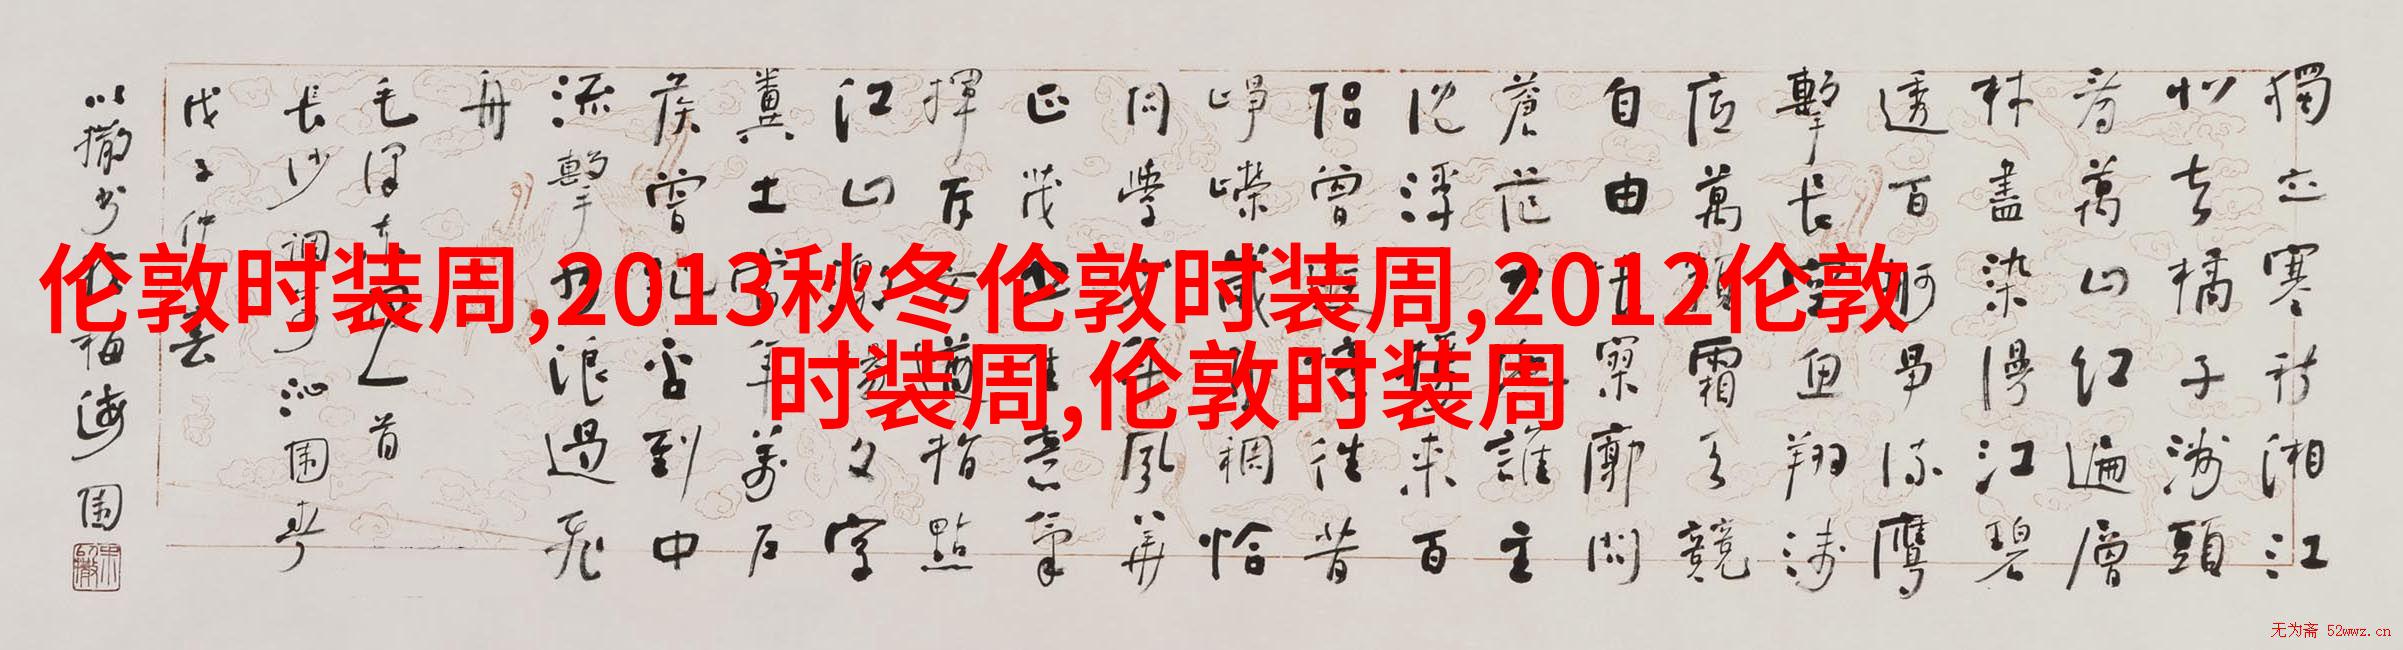 伦敦时装周,2013秋冬伦敦时装周,2012伦敦
时装周,伦敦时装周
獨立寒秋湘江
北去橘子洲頭
看萬山紅遍層
林盡染漫江碧
透百舸爭流鷹
擊長空魚翔淺
底萬類霜天競
自由寥廓問
蒼茫大誰主
沈浮攜來百
侶曾往昔
崢嶸歲稠恰
同學年風華
正茂意氣
揮斥方遒指點
江山激文字
糞土當年萬戶
侯曾記否到中
流擊水浪遏飛
舟
毛首
長沙調寄沁園春
戊子仲春
以撤書福海園
无为斋 52wwz.cn